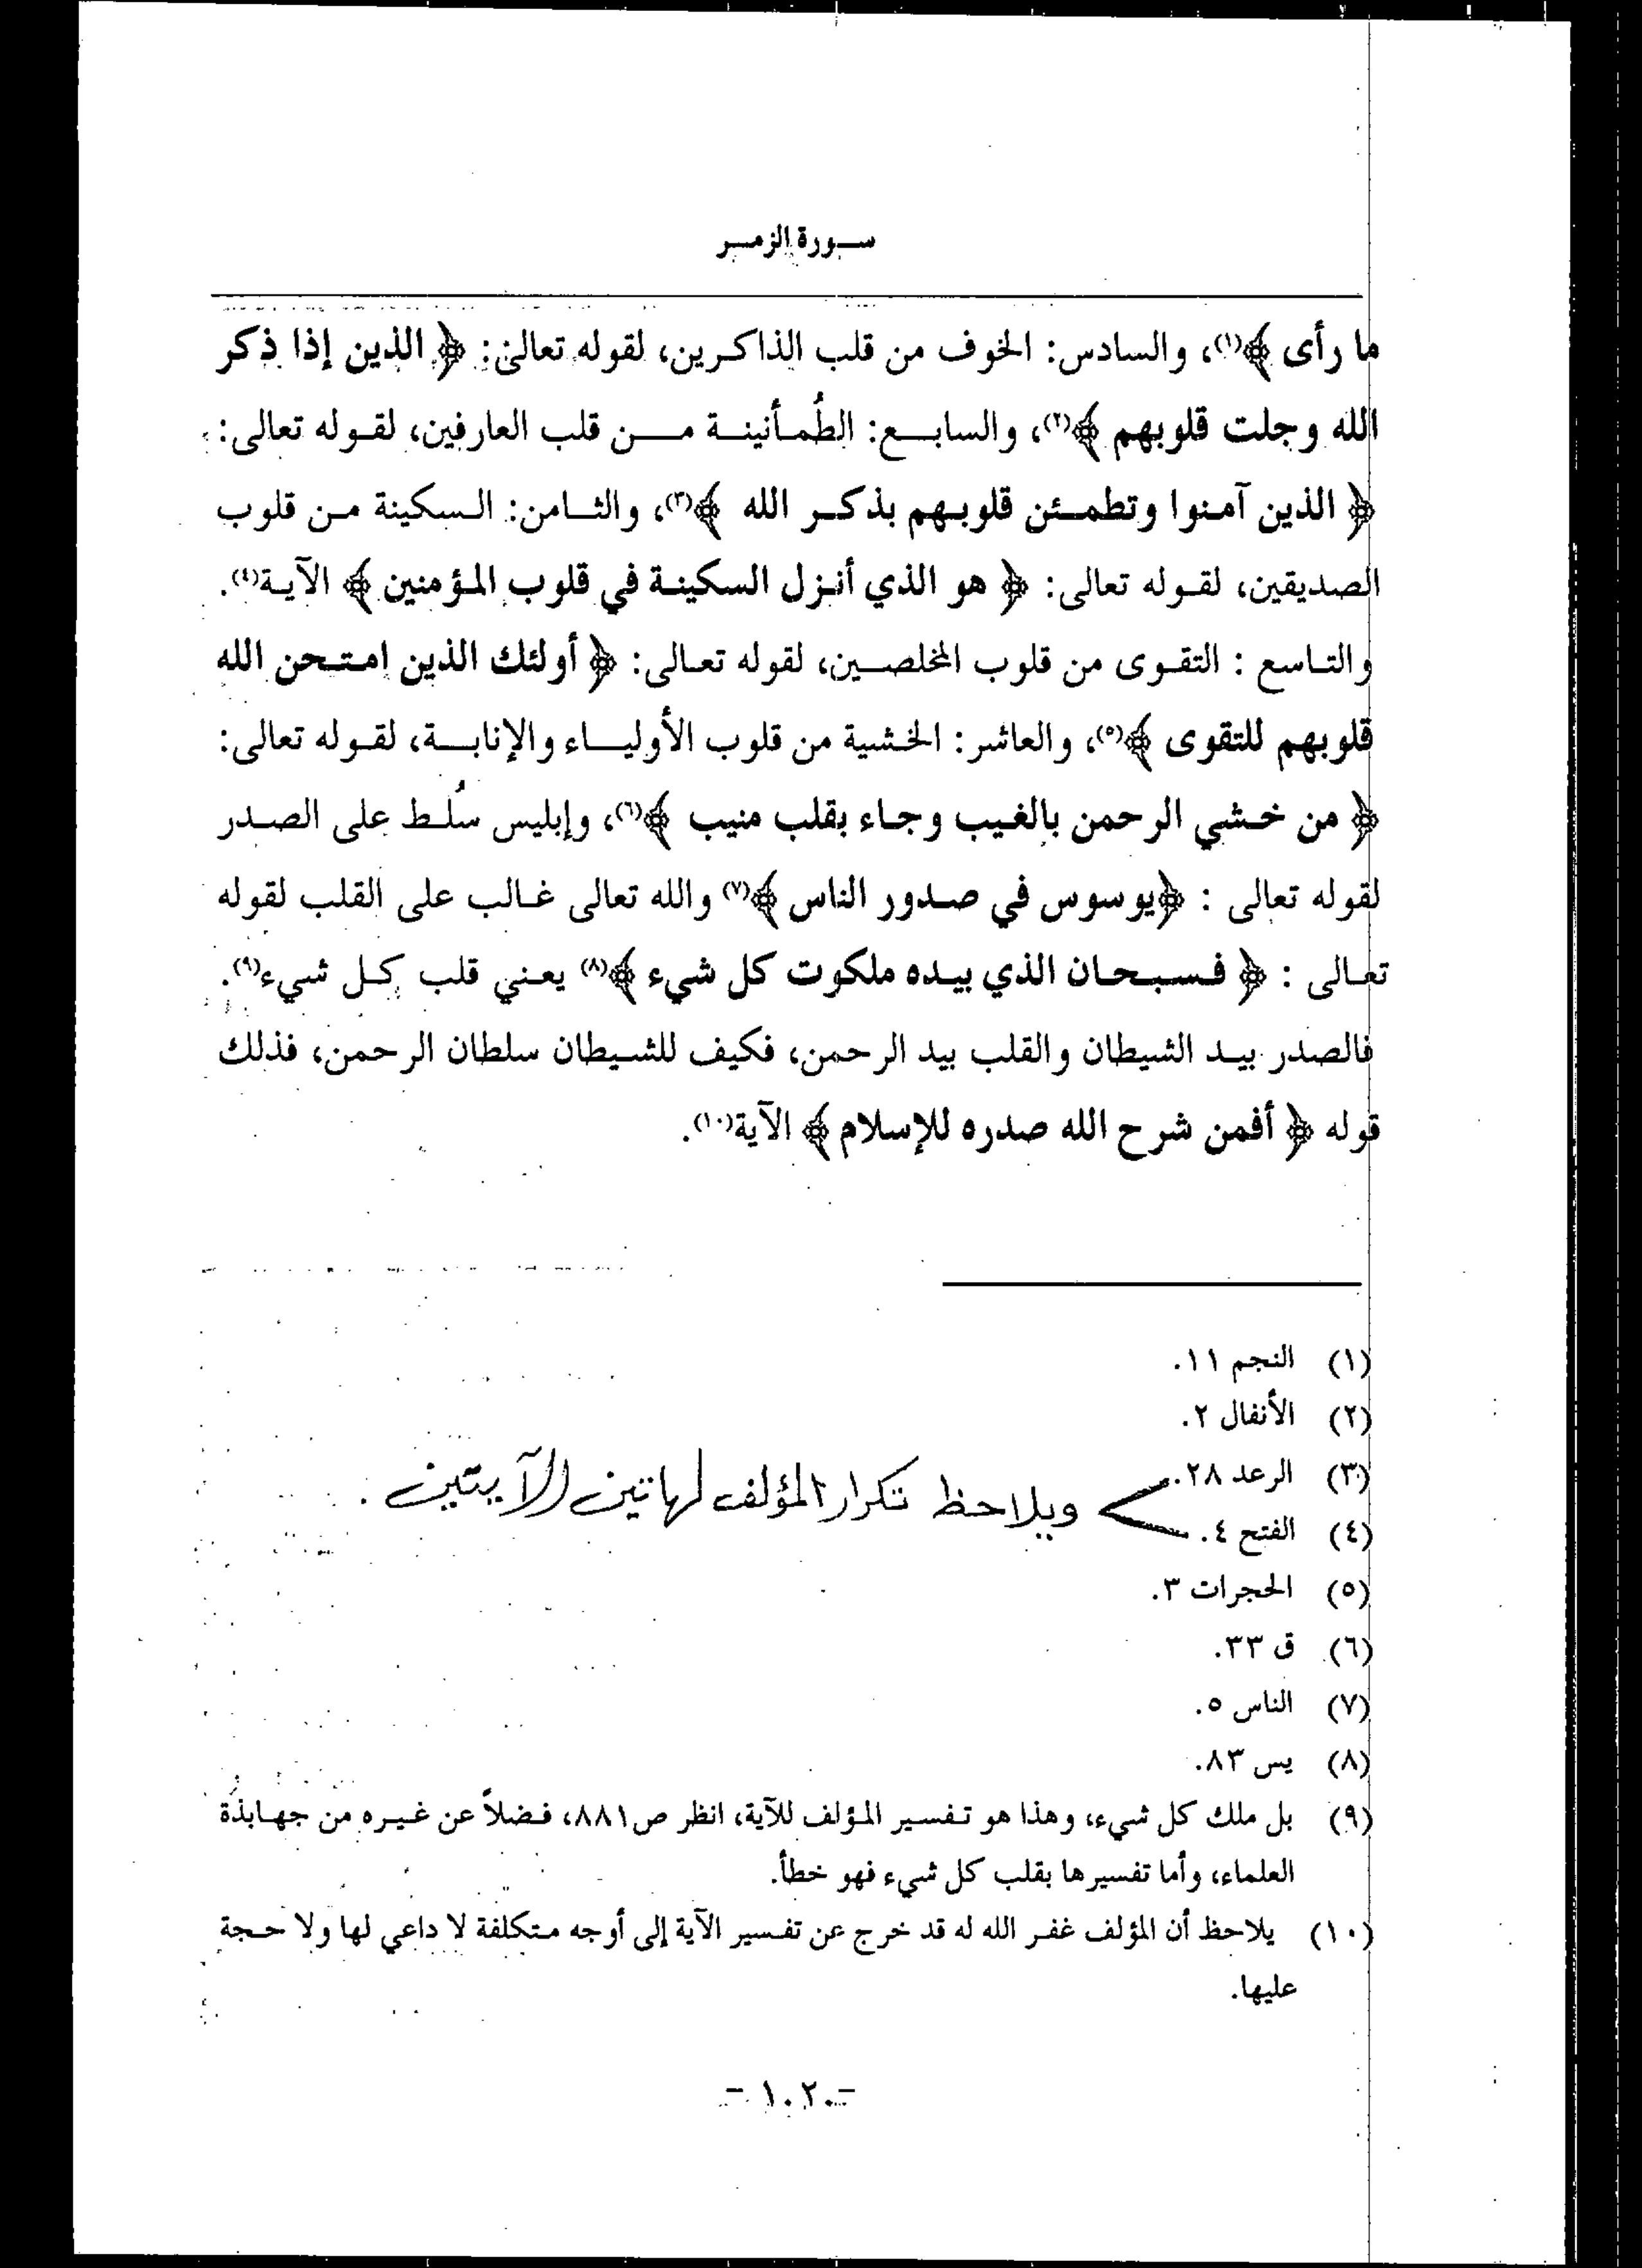 سـورة الزمـر
ما رأى ﴾(١)، والسادس: الخوف من قلب الذاكـرين، لقوله تعالى: ﴿ الذين إذا ذكر
الله وجلت قلوبهم ﴾(٢)، والسابـع: الطُمـأنينـة مـن قلب العارفين، لقـوله تعالى:
﴿ الذين آمنوا وتطمـئن قلوبـهم بذكـر الله ﴾(٣)، والثـامن: السكينة مـن قلوب
الصديقين، لقـوله تعالى: ﴿ هو الذي أنـزل السكينـة في قلوب المـؤمنين ﴾ الآيـة(٤).
والتـاسع : التقـوى من قلوب المخلصـين، لقوله تعـالى: ﴿ أولئك الذين امـتـحن الله
قلوبهم للتقوى ﴾(٥)، والعاشر: الخشية من قلوب الأوليـاء والإنابـة، لقـوله تعالى:
﴿ من خـشي الرحمن بالغـيب وجـاء بقلب منيب ﴾(٦)، وإبليس سُلـط على الصـدر
لقوله تعالى : ﴿يوسوس في صـدور الناس ﴾(٧) والله تعالى غـالب على القلب لقوله
تعـالى : ﴿ فـسبـحـان الذي بيـده ملكوت كل شيء ﴾(٨) يعـني قلب كـل شيء(٩).
فالصدر بيـد الشيطان والقلب بيد الرحمن، فكيف للشـيطان سلطان الرحمن، فذلك
قوله ﴿ أفمن شرح الله صدره للإسلام ﴾ الآية(١٠).
(١) النجم ١١.
(٢) الأنفال ٢.
(٣) الرعد ٢٨.
ويلاحظ تكرار المؤلف لهاتين الآيتين .
(٤) الفتح ٤.
(٥) الحجرات ٣.
(٦) ق ٣٣.
(٧) الناس ٥.
(٨) يس ٨٣.
(٩) بل ملك كل شيء، وهذا هو تـفسير المـؤلف للآية، انظر ص٨٨١، فـضلاً عن غـيـره من جهـابذة
العلماء، وأما تفسيرها بقلب كل شيء فهو خطأ.
(١٠) يلاحظ أن المؤلف غفـر الله له قد خرج عن تفـسير الآية إلى أوجه مـتكلفة لا داعي لها ولا حـجة
عليها.
- ١٠٢٠ -